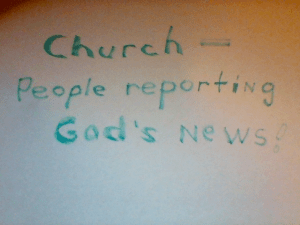 Church —
People reporting
God's News!